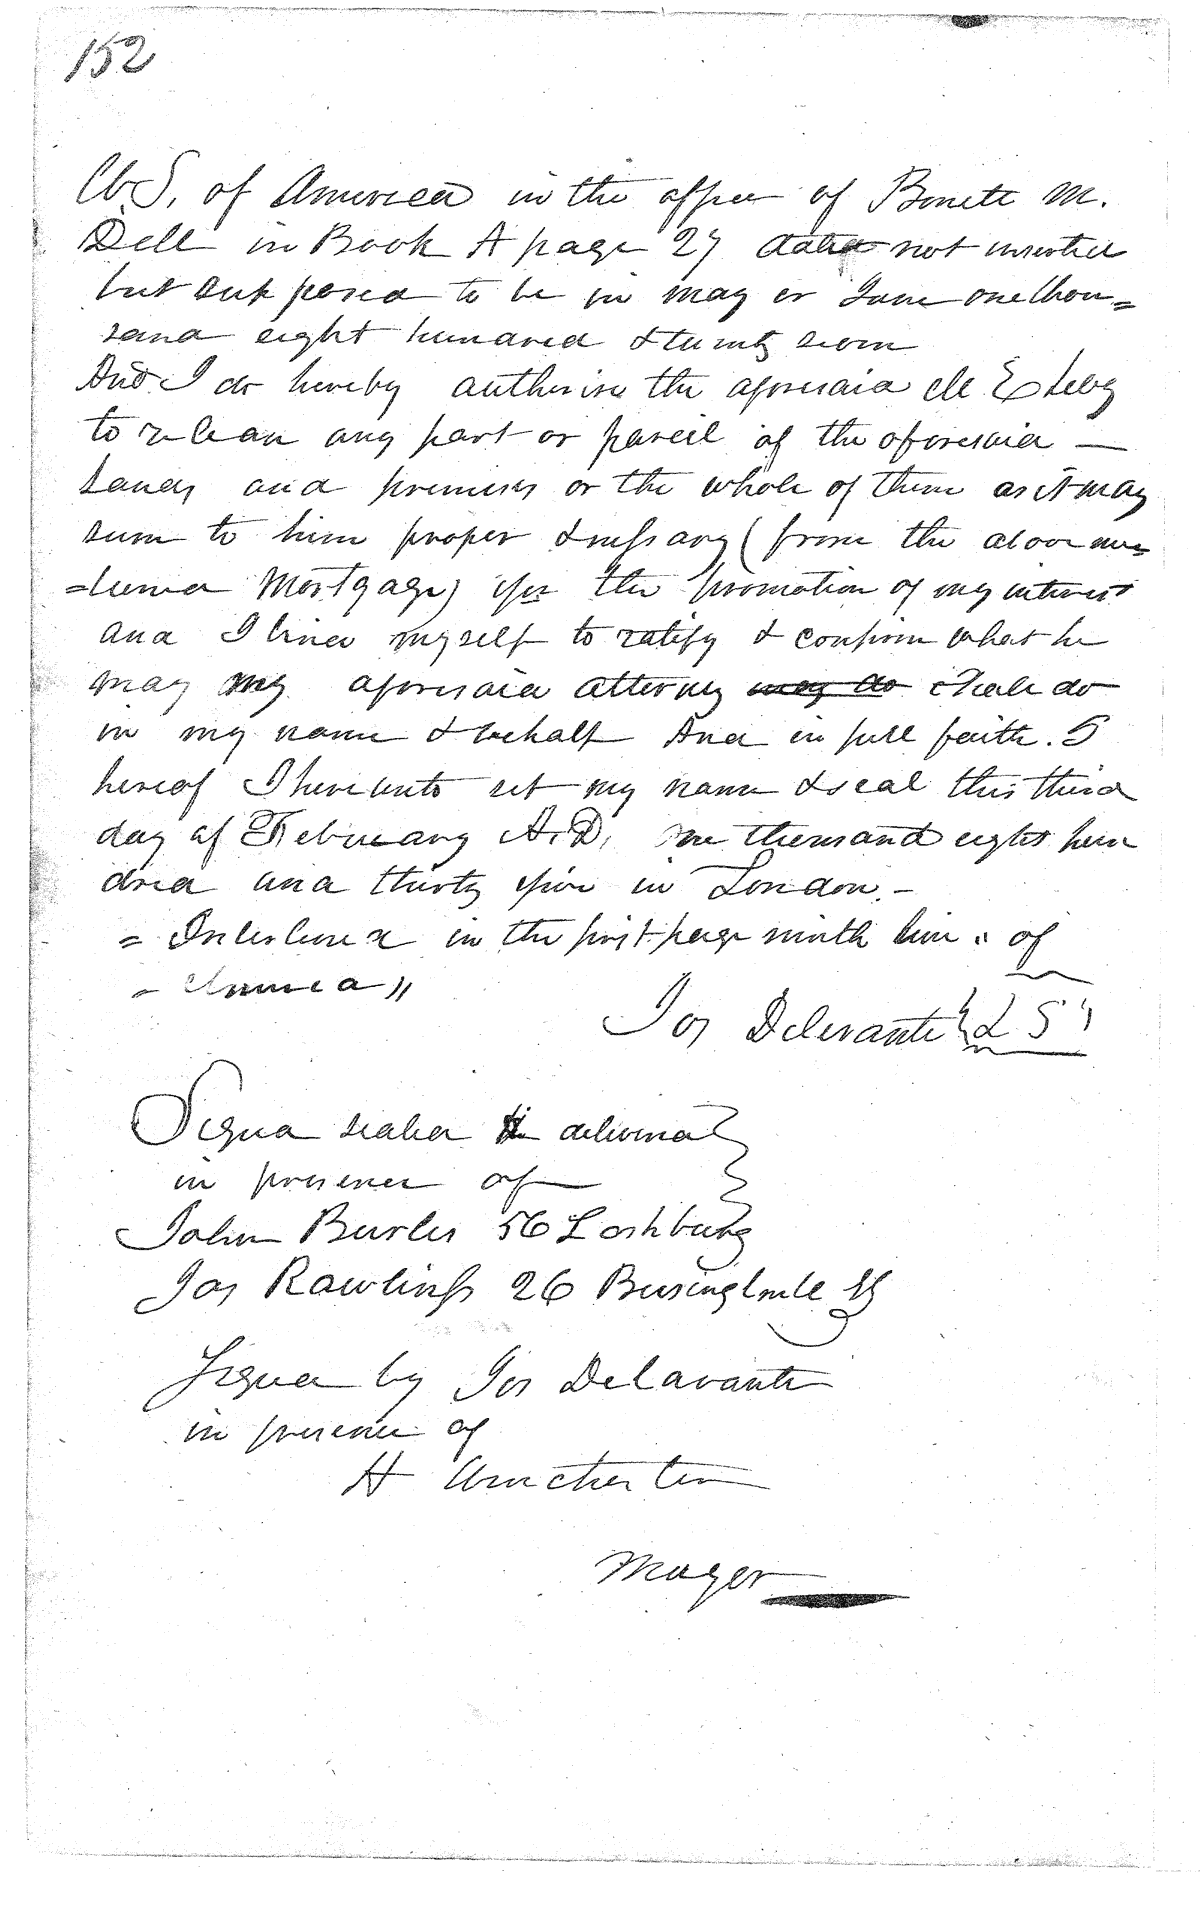 152
U.S. of America in the office of Bonete M.
Dell in Book A page 27 date not inserted
but supposed to be in May or June one thou=
sand eight hundred & twenty seven
And I do hereby authorise the aforesaid M E Levy
to release any part or parcell of the aforesaid —
Lands and premises or the whole of them as it may
seem to him proper & nessary (from the above men=
=tioned Mortgage) for the promotion of my interest
and I bind myself to ratify & confirm what he
may my aforesaid attorney may do shall do
in my name & behalf And in full faith.
hereof I hereunto set my name & seal this third
day of Februeary A.D. one thousand eight hun
dred and thirty five in London. –
= Interlined in the first page ninth line " of
– America "
Jos Delevante {L S}
Signed sealed & delivered
in presence of
John Burles 56 Lothbury
Jas Rawlings 26 St
Signed by Jos Delavante
in presence of
H Winchester
Mayor